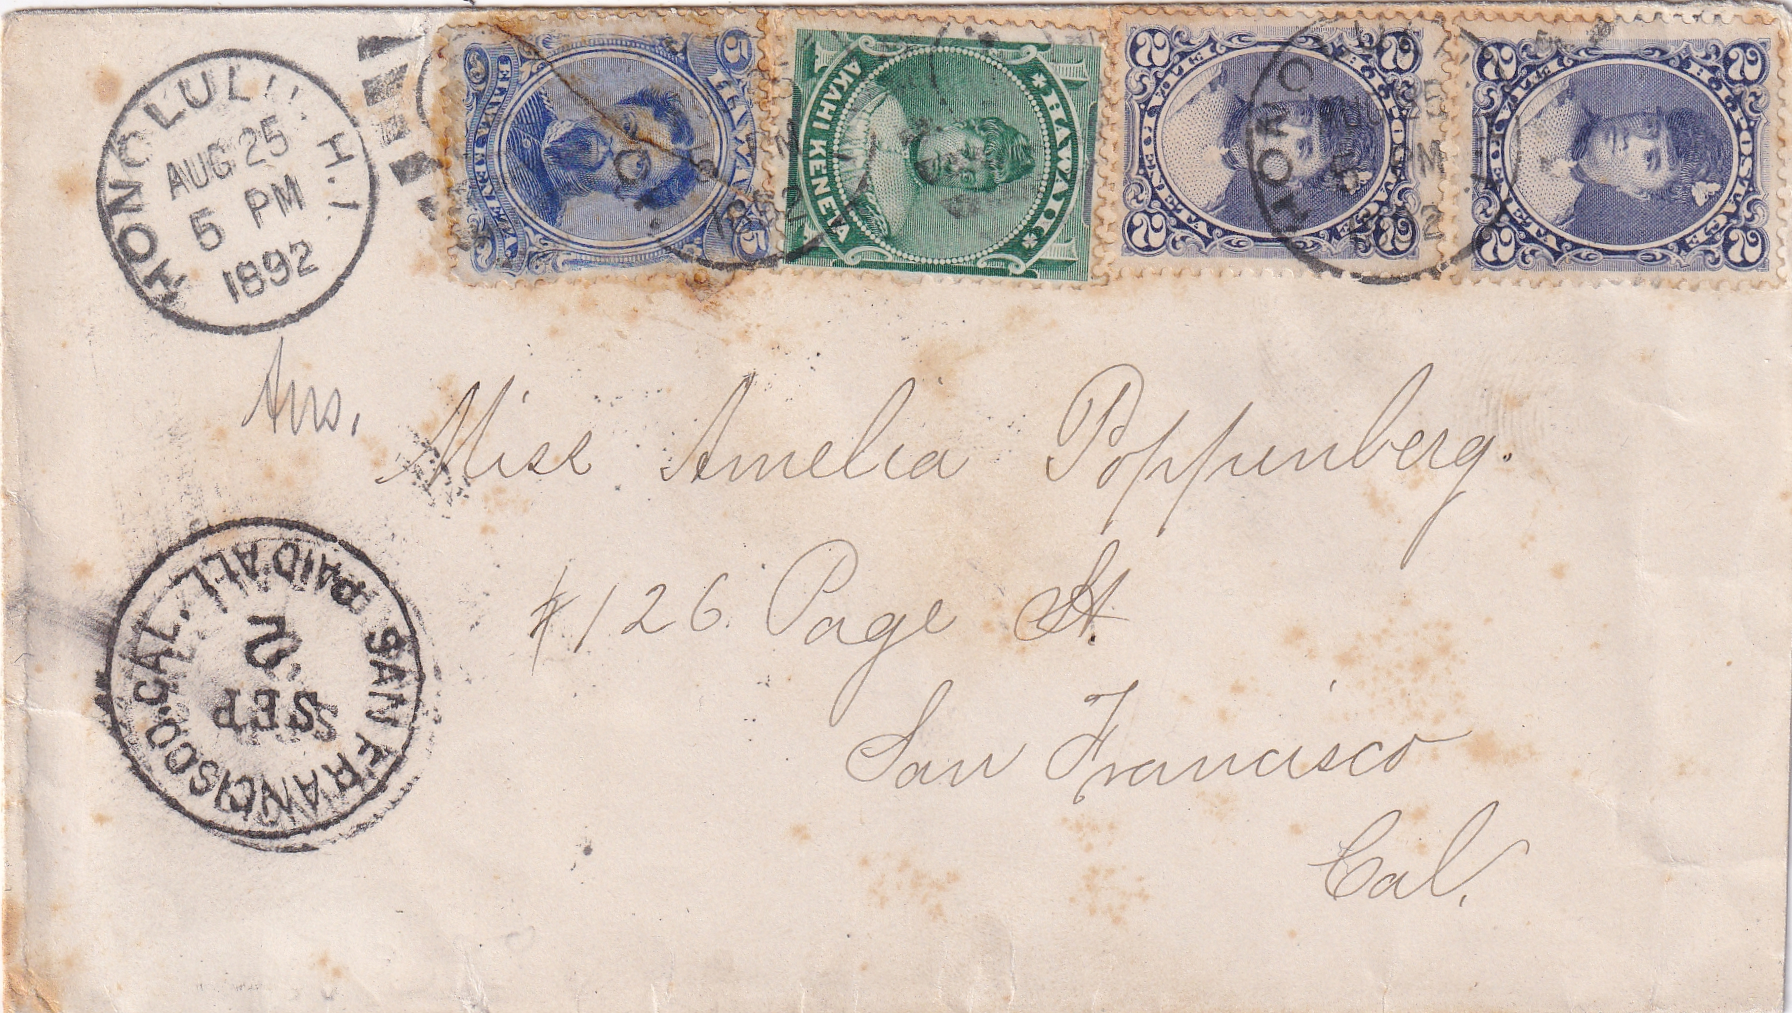 HONOLULU H.I.
AUG 25
5 PM
1892
5 HAWAII 5
HAWAII
AKAHI KENETA
1 1
2 2
2 2
HONOLULU H.I.
1892
Ans.
Miss Amelia Poppenberg.
#126 Page St.
San Francisco
Cal.
SAN FRANCISCO, CAL. PAID ALL
SEP
2